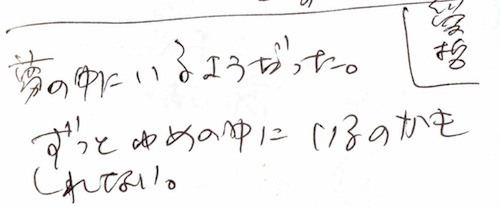 夢の中にいるようだった。
ずっとゆめの中にいるのかも
しれない。